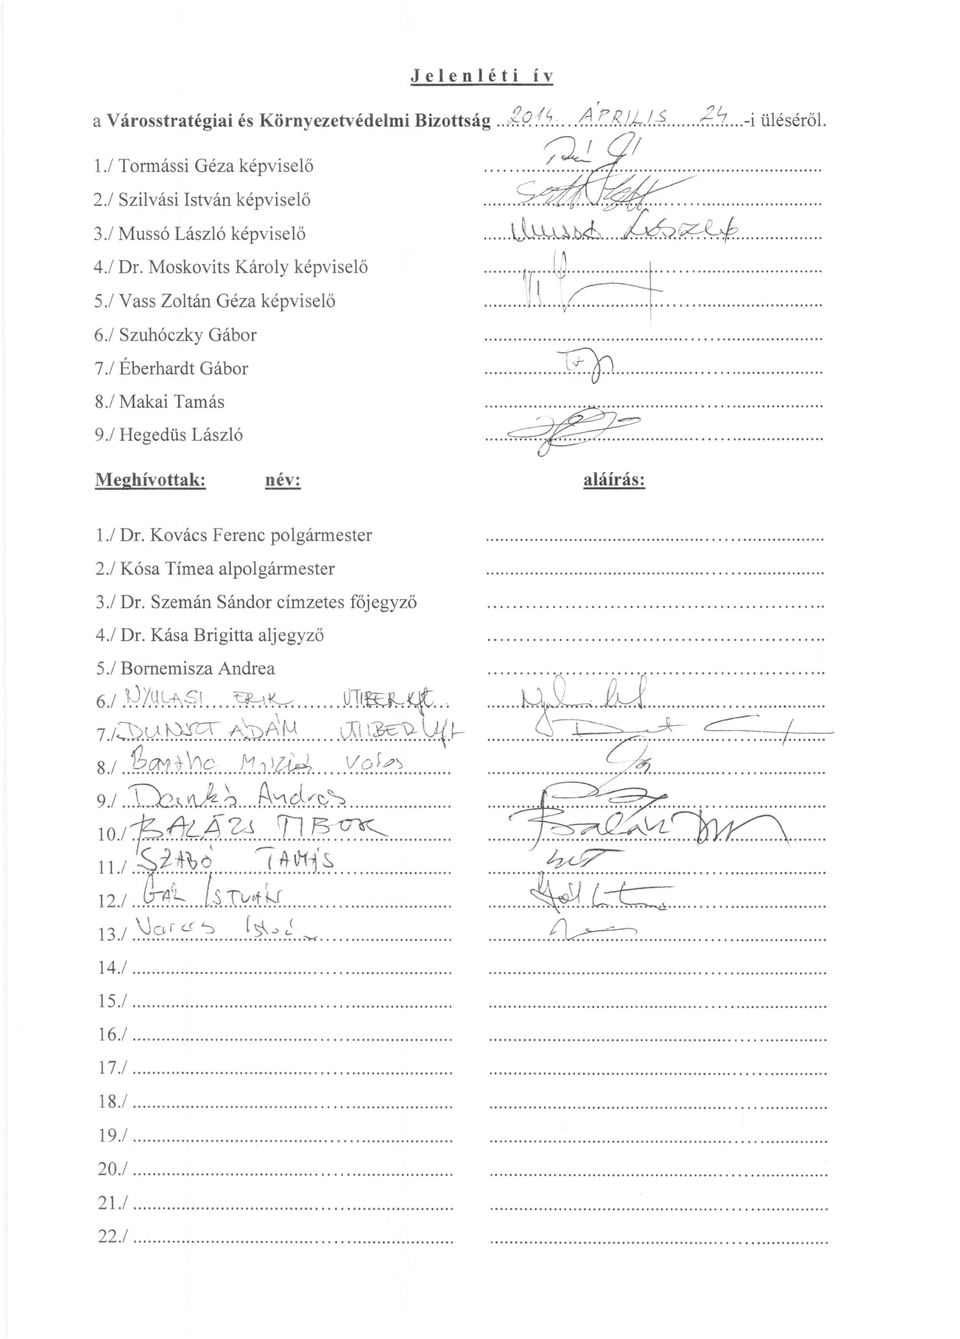 Jelenléti ív
a Városstratégiai és Környezetvédelmi Bizottság ...2014.... ÁPRILIS......24...-i üléséről.
1./ Tormássi Géza képviselő
2./ Szilvási István képviselő
3./ Mussó László képviselő Mussó László
4./ Dr. Moskovits Károly képviselő
5./ Vass Zoltán Géza képviselő
6./ Szuhóczky Gábor
7./ Éberhardt Gábor
8./ Makai Tamás
9./ Hegedüs László
Meghívottak: név: aláírás:
1./ Dr. Kovács Ferenc polgármester
2./ Kósa Tímea alpolgármester
3./ Dr. Szemán Sándor címzetes főjegyző
4./ Dr. Kása Brigitta aljegyző
5./ Bornemisza Andrea
6./ NYULASI ERIK UTIBER Kft.
7./ ÁDÁM UTIBER Kft
8./ Bartha
9./ Dankó András
10./ BALÁZS TIBOR Balázs
11./ SZABÓ TAMÁS
12./ GÁL ISTVÁN
13./
14./
15./
16./
17./
18./
19./
20./
21./
22./